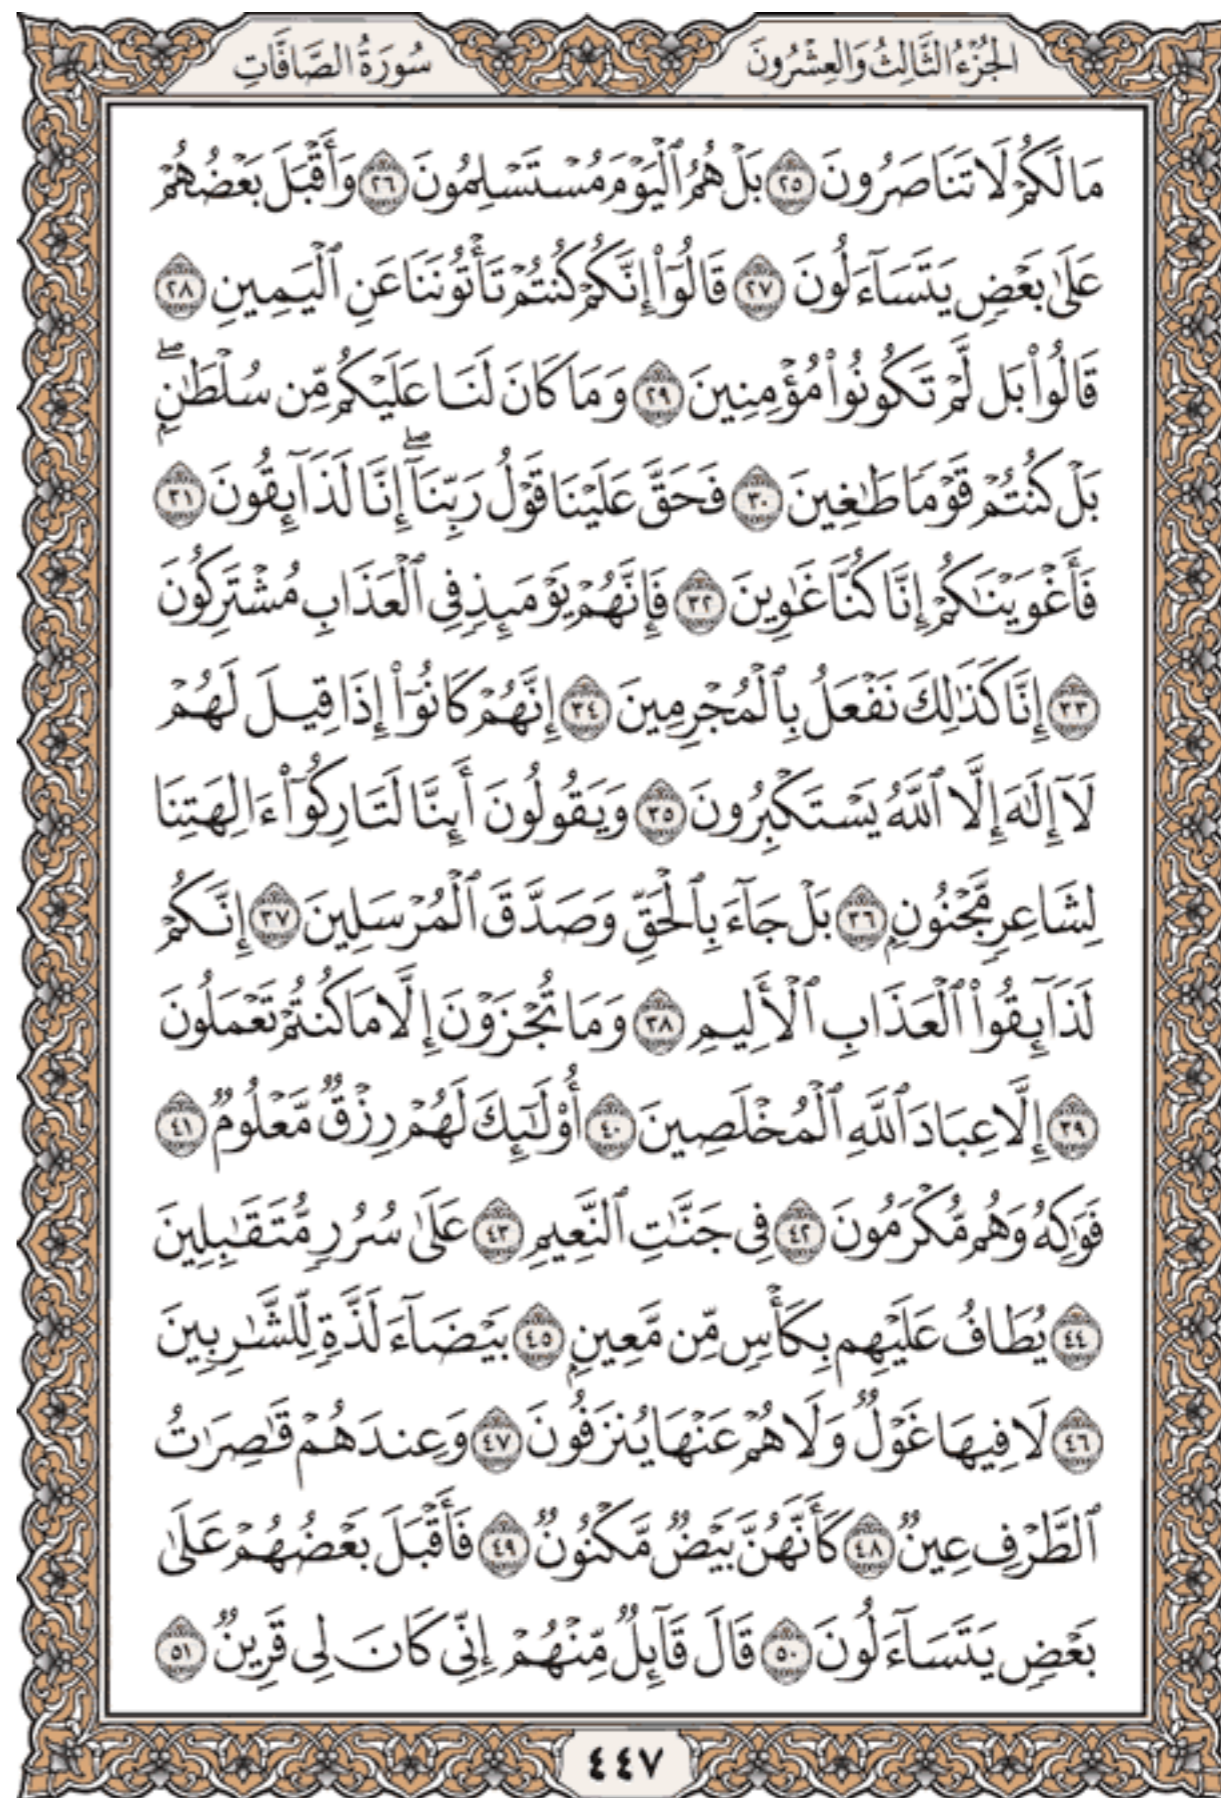 الجُزْءُ الثَّالِثُ وَالعِشْرُونَ
سُورَةُ الصَّافَّاتِ
مَا لَكُمْ لَا تَنَاصَرُونَ ٢٥ بَلْ هُمُ ٱلْيَوْمَ مُسْتَسْلِمُونَ ٢٦ وَأَقْبَلَ بَعْضُهُمْ
عَلَىٰ بَعْضٍ يَتَسَآءَلُونَ ٢٧ قَالُوٓا۟ إِنَّكُمْ كُنتُمْ تَأْتُونَنَا عَنِ ٱلْيَمِينِ ٢٨
قَالُوا۟ بَل لَّمْ تَكُونُوا۟ مُؤْمِنِينَ ٢٩ وَمَا كَانَ لَنَا عَلَيْكُم مِّن سُلْطَـٰنٍۭ ۖ
بَلْ كُنتُمْ قَوْمًا طَـٰغِينَ ٣٠ فَحَقَّ عَلَيْنَا قَوْلُ رَبِّنَآ ۖ إِنَّا لَذَآئِقُونَ ٣١
فَأَغْوَيْنَـٰكُمْ إِنَّا كُنَّا غَـٰوِينَ ٣٢ فَإِنَّهُمْ يَوْمَئِذٍ فِى ٱلْعَذَابِ مُشْتَرِكُونَ
٣٣ إِنَّا كَذَٰلِكَ نَفْعَلُ بِٱلْمُجْرِمِينَ ٣٤ إِنَّهُمْ كَانُوٓا۟ إِذَا قِيلَ لَهُمْ
لَآ إِلَـٰهَ إِلَّا ٱللَّهُ يَسْتَكْبِرُونَ ٣٥ وَيَقُولُونَ أَئِنَّا لَتَارِكُوٓا۟ ءَالِهَتِنَا
لِشَاعِرٍ مَّجْنُونٍۭ ٣٦ بَلْ جَآءَ بِٱلْحَقِّ وَصَدَّقَ ٱلْمُرْسَلِينَ ٣٧ إِنَّكُمْ
لَذَآئِقُوا۟ ٱلْعَذَابِ ٱلْأَلِيمِ ٣٨ وَمَا تُجْزَوْنَ إِلَّا مَا كُنتُمْ تَعْمَلُونَ
٣٩ إِلَّا عِبَادَ ٱللَّهِ ٱلْمُخْلَصِينَ ٤٠ أُو۟لَـٰٓئِكَ لَهُمْ رِزْقٌ مَّعْلُومٌ ٤١
فَوَٰكِهُ وَهُم مُّكْرَمُونَ ٤٢ فِى جَنَّـٰتِ ٱلنَّعِيمِ ٤٣ عَلَىٰ سُرُرٍ مُّتَقَـٰبِلِينَ
٤٤ يُطَافُ عَلَيْهِم بِكَأْسٍ مِّن مَّعِينٍۭ ٤٥ بَيْضَآءَ لَذَّةٍ لِّلشَّـٰرِبِينَ
٤٦ لَا فِيهَا غَوْلٌ وَلَا هُمْ عَنْهَا يُنزَفُونَ ٤٧ وَعِندَهُمْ قَـٰصِرَٰتُ
ٱلطَّرْفِ عِينٌ ٤٨ كَأَنَّهُنَّ بَيْضٌ مَّكْنُونٌ ٤٩ فَأَقْبَلَ بَعْضُهُمْ عَلَىٰ
بَعْضٍ يَتَسَآءَلُونَ ٥٠ قَالَ قَآئِلٌ مِّنْهُمْ إِنِّى كَانَ لِى قَرِينٌ ٥١
٤٤٧